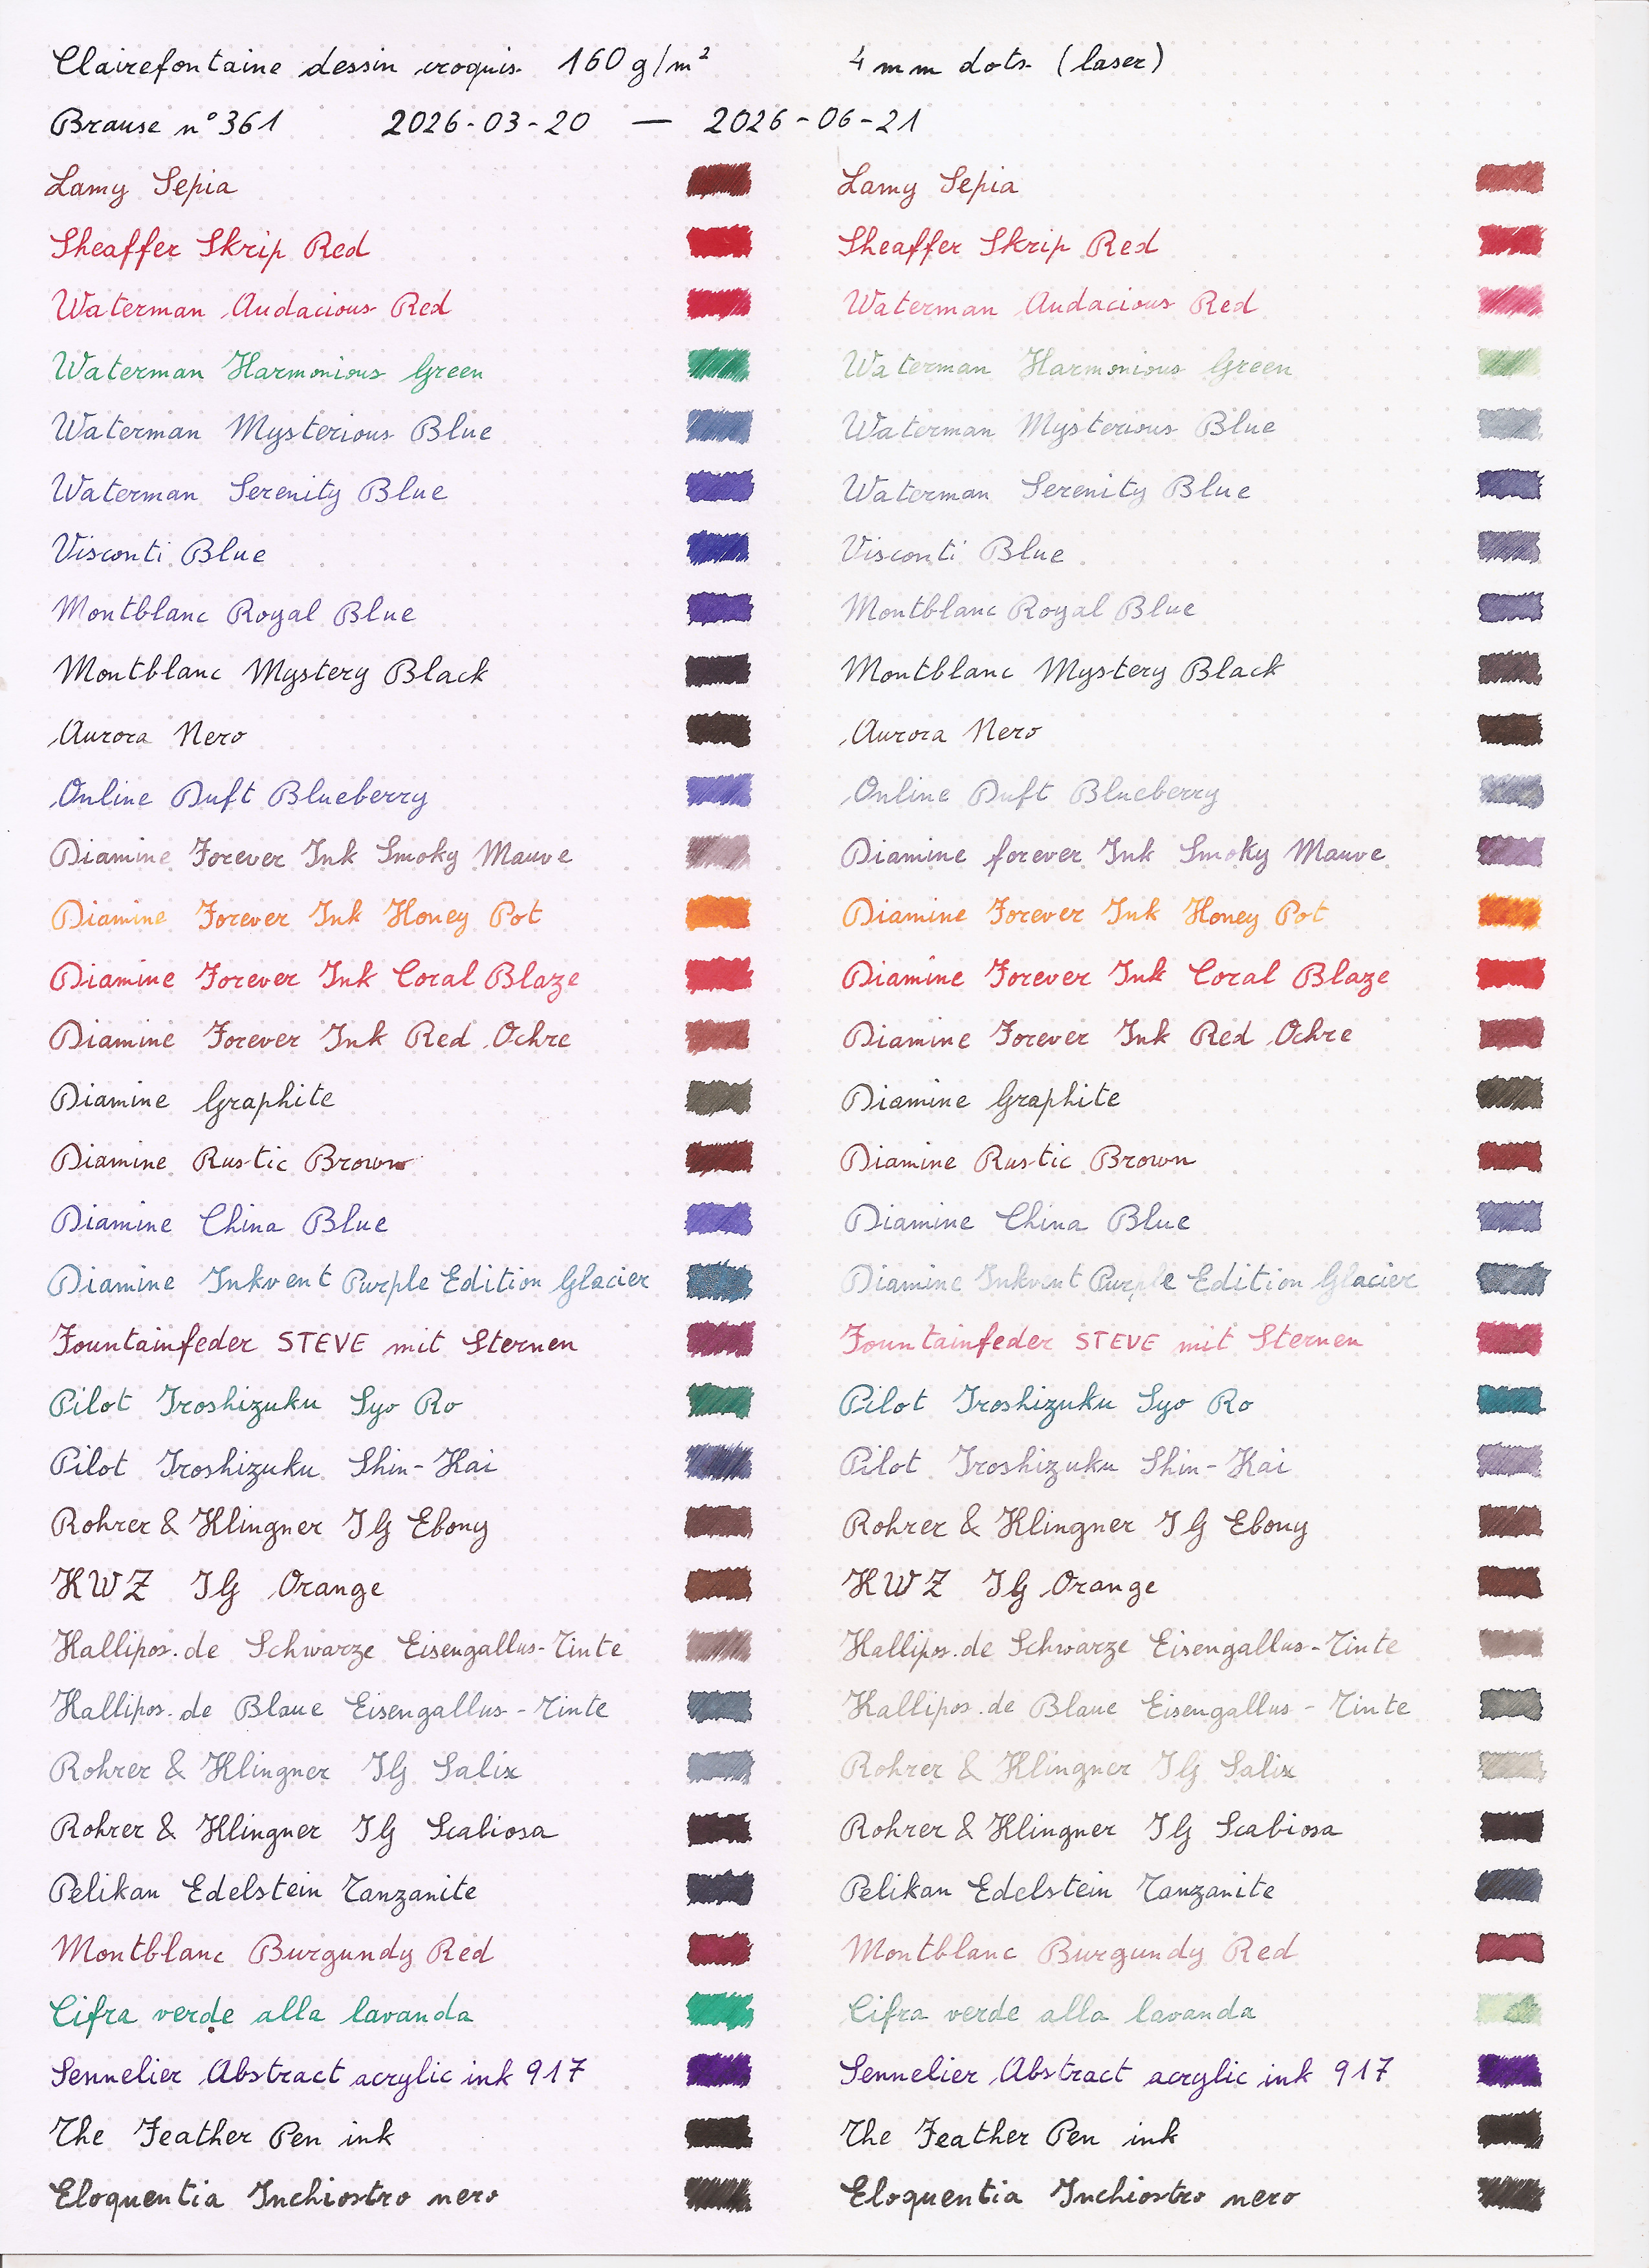 Clairefontaine dessin croquis 160 g/m² 4 mm dots (laser)
Brause n° 361 2026-03-20 — 2026-06-21
Lamy Sepia Lamy Sepia
Sheaffer Skrip Red Sheaffer Skrip Red
Waterman Audacious Red Waterman Audacious Red
Waterman Harmonious Green Waterman Harmonious Green
Waterman Mysterious Blue Waterman Mysterious Blue
Waterman Serenity Blue Waterman Serenity Blue
Visconti Blue Visconti Blue
Montblanc Royal Blue Montblanc Royal Blue
Montblanc Mystery Black Montblanc Mystery Black
Aurora Nero Aurora Nero
Online Duft Blueberry Online Duft Blueberry
Diamine Forever Ink Smoky Mauve Diamine forever Ink Smoky Mauve
Diamine Forever Ink Honey Pot Diamine Forever Ink Honey Pot
Diamine Forever Ink Coral Blaze Diamine Forever Ink Coral Blaze
Diamine Forever Ink Red Ochre Diamine Forever Ink Red Ochre
Diamine Graphite Diamine Graphite
Diamine Rustic Brown Diamine Rustic Brown
Diamine China Blue Diamine China Blue
Diamine Inkvent Purple Edition Glacier Diamine Inkvent Purple Edition Glacier
Fountainfeder STEVE mit Sternen Fountainfeder STEVE mit Sternen
Pilot Iroshizuku Syo Ro Pilot Iroshizuku Syo Ro
Pilot Iroshizuku Shin-Kai Pilot Iroshizuku Shin-Kai
Rohrer & Klingner IG Ebony Rohrer & Klingner IG Ebony
KWZ IG Orange KWZ IG Orange
Kallipos.de Schwarze Eisengallus-Tinte Kallipos.de Schwarze Eisengallus-Tinte
Kallipos.de Blaue Eisengallus-Tinte Kallipos.de Blaue Eisengallus-Tinte
Rohrer & Klingner IG Salix Rohrer & Klingner IG Salix
Rohrer & Klingner IG Scabiosa Rohrer & Klingner IG Scabiosa
Pelikan Edelstein Tanzanite Pelikan Edelstein Tanzanite
Montblanc Burgundy Red Montblanc Burgundy Red
Cifra verde alla lavanda Cifra verde alla lavanda
Sennelier Abstract acrylic ink 917 Sennelier Abstract acrylic ink 917
The Feather Pen ink The Feather Pen ink
Eloquentia Inchiostro nero Eloquentia Inchiostro nero